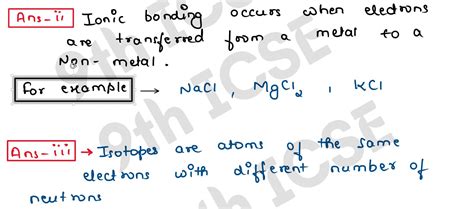 Ans-ii Ionic bonding occurs when electrons
are transferred from a metal to a
Non-metal.
For example → NaCl, MgCl₂, KCl
Ans-iii → Isotopes are atoms of the same
electrons with different number of
neutrons
9th ICSE
9th ICSE